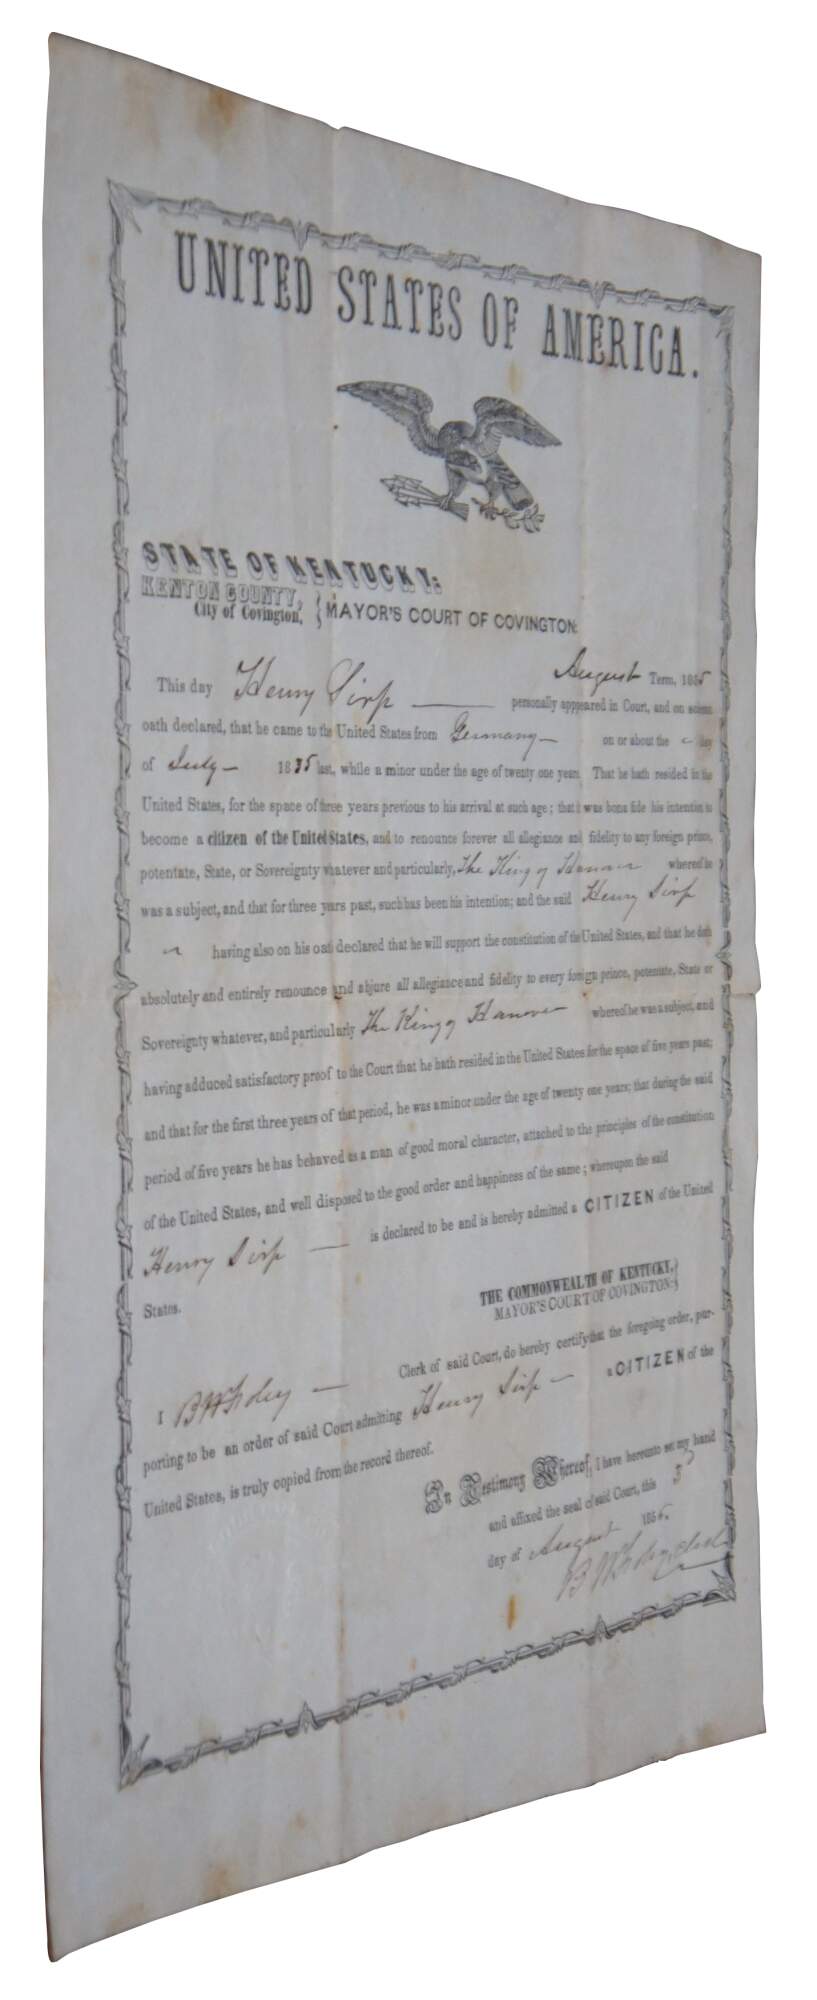 UNITED STATES OF AMERICA.
STATE OF KENTUCKY:
KENTON COUNTY,
City of Covington, } MAYOR'S COURT OF COVINGTON:
August Term, 1855
This day Henry Sirp — personally appeared in Court, and on solemn
oath declared, that he came to the United States from Germany — on or about the – day
of July – 1835 last, while a minor under the age of twenty one years. That he hath resided in the
United States, for the space of three years previous to his arrival at such age; that it was bona fide his intention to
become a citizen of the United States, and to renounce forever all allegiance and fidelity to any foreign prince,
potentate, State, or Sovereignty whatever and particularly, The King of Hanover whereof he
was a subject, and that for three years past, such has been his intention; and the said Henry Sirp
having also on his oath declared that he will support the constitution of the United States, and that he doth
absolutely and entirely renounce and abjure all allegiance and fidelity to every foreign prince, potentate, State or
Sovereignty whatever, and particularly The King of Hanover whereof he was a subject, and
having adduced satisfactory proof to the Court that he hath resided in the United States for the space of five years past;
and that for the first three years of that period, he was a minor under the age of twenty one years; that during the said
period of five years he has behaved as a man of good moral character, attached to the principles of the constitution
of the United States, and well disposed to the good order and happiness of the same; whereupon the said
Henry Sirp — is declared to be and is hereby admitted a CITIZEN of the United
States.
THE COMMONWEALTH OF KENTUCKY, }
MAYOR'S COURT OF COVINGTON: }
I B W Foley — Clerk of said Court, do hereby certify that the foregoing order, pur-
porting to be an order of said Court admitting Henry Sirp — a CITIZEN of the
United States, is truly copied from the record thereof.
In Testimony Whereof, I have hereunto set my hand
and affixed the seal of said Court, this 3
day of August 1855.
B W Foley, Clerk